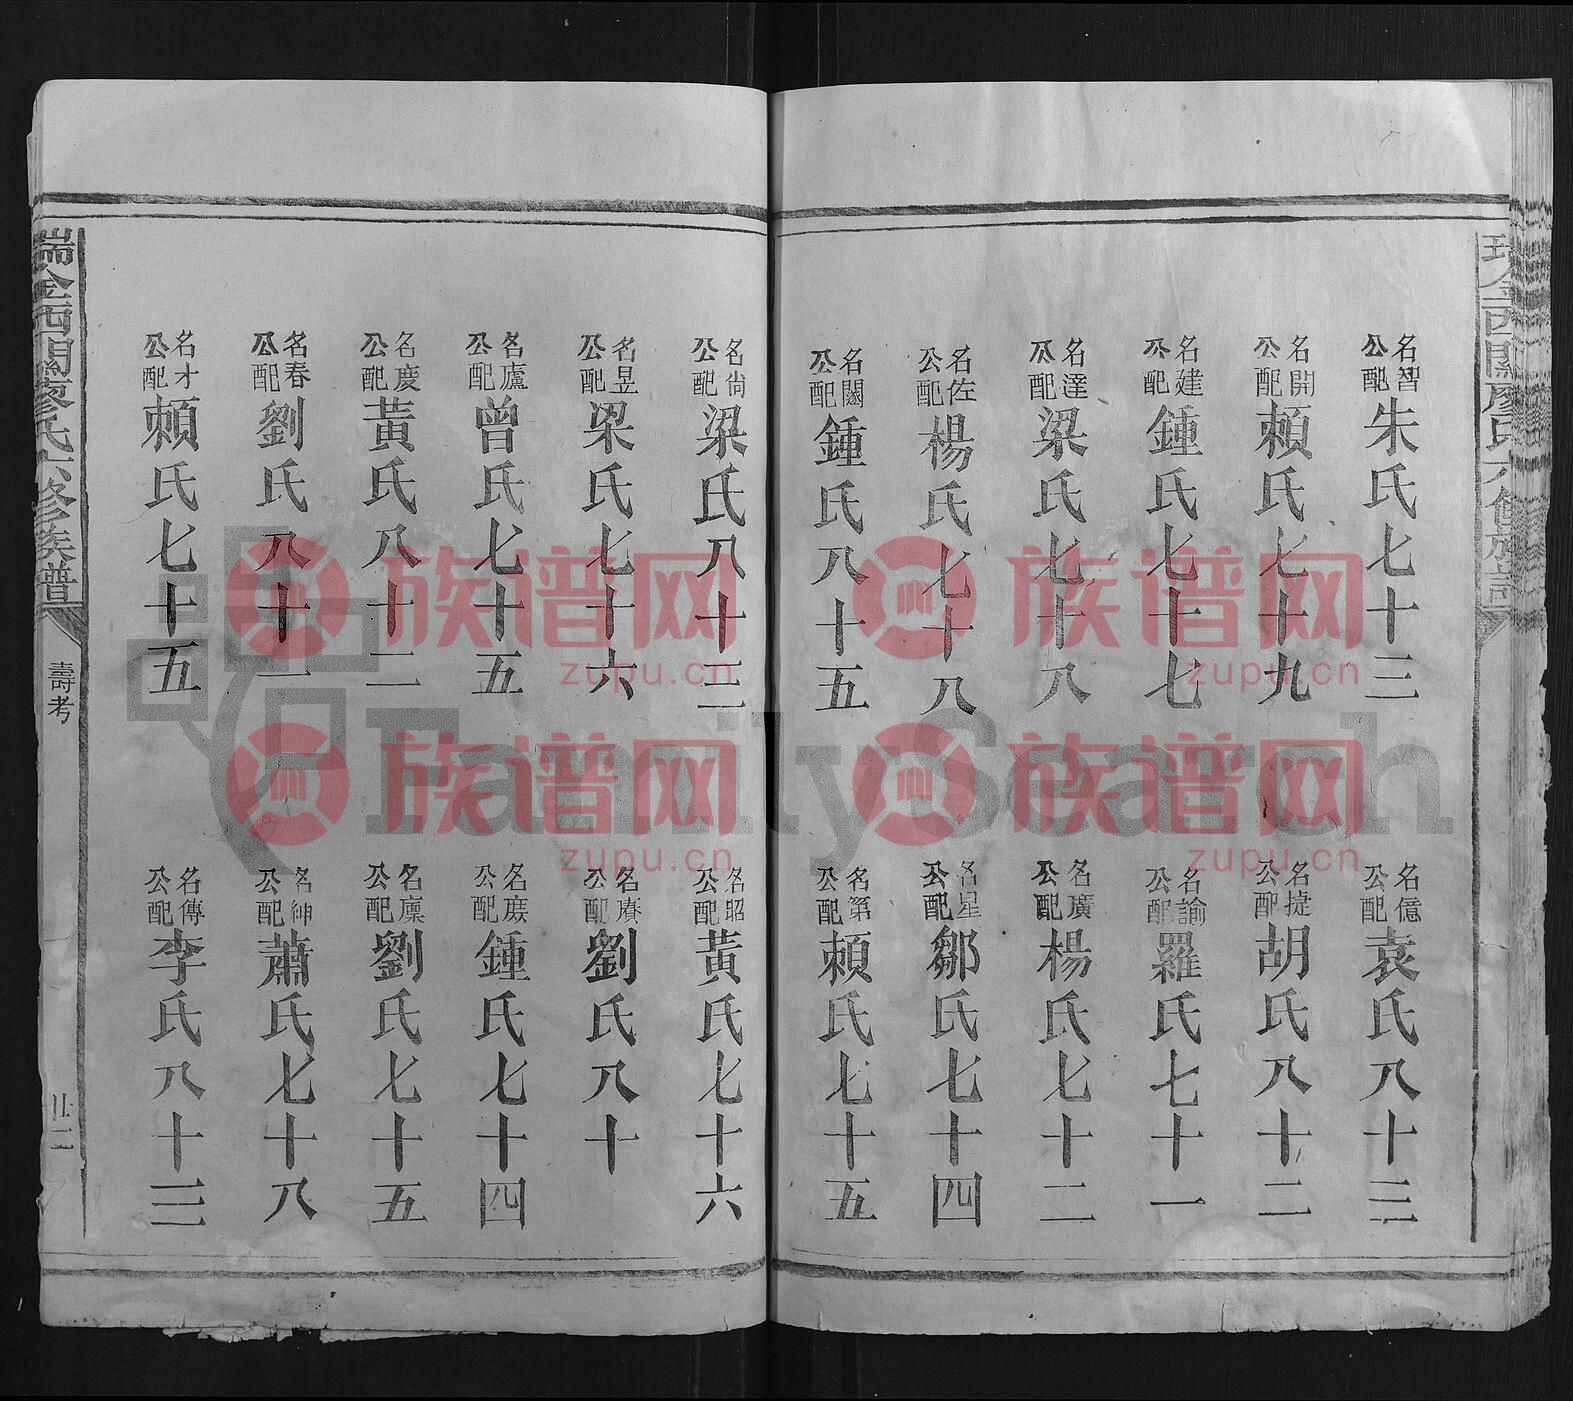 名智公配朱氏七十三
名億公配袁氏八十三
名開公配賴氏七十九
名捷公配胡氏八十二
名建公配鍾氏七十七
名諭公配羅氏七十一
名達公配梁氏七十八
名廣公配楊氏七十二
名佐公配楊氏七十八
名星公配鄒氏七十四
名闊公配鍾氏八十五
名第公配賴氏七十五
名尙公配梁氏八十三
名昭公配黃氏七十六
名昱公配梁氏七十六
名賡公配劉氏八十
名廬公配曾氏七十五
名庶公配鍾氏七十四
名慶公配黃氏八十二
名廩公配劉氏七十五
名春公配劉氏八十一
名紳公配蕭氏七十八
名才公配賴氏七十五
名傳公配李氏八十三
瑞金西關廖氏六修族譜
壽考
卄二
族谱网
zupu.cn
族谱网
zupu.cn
族谱网
zupu.cn
族谱网
zupu.cn
FamilySearch